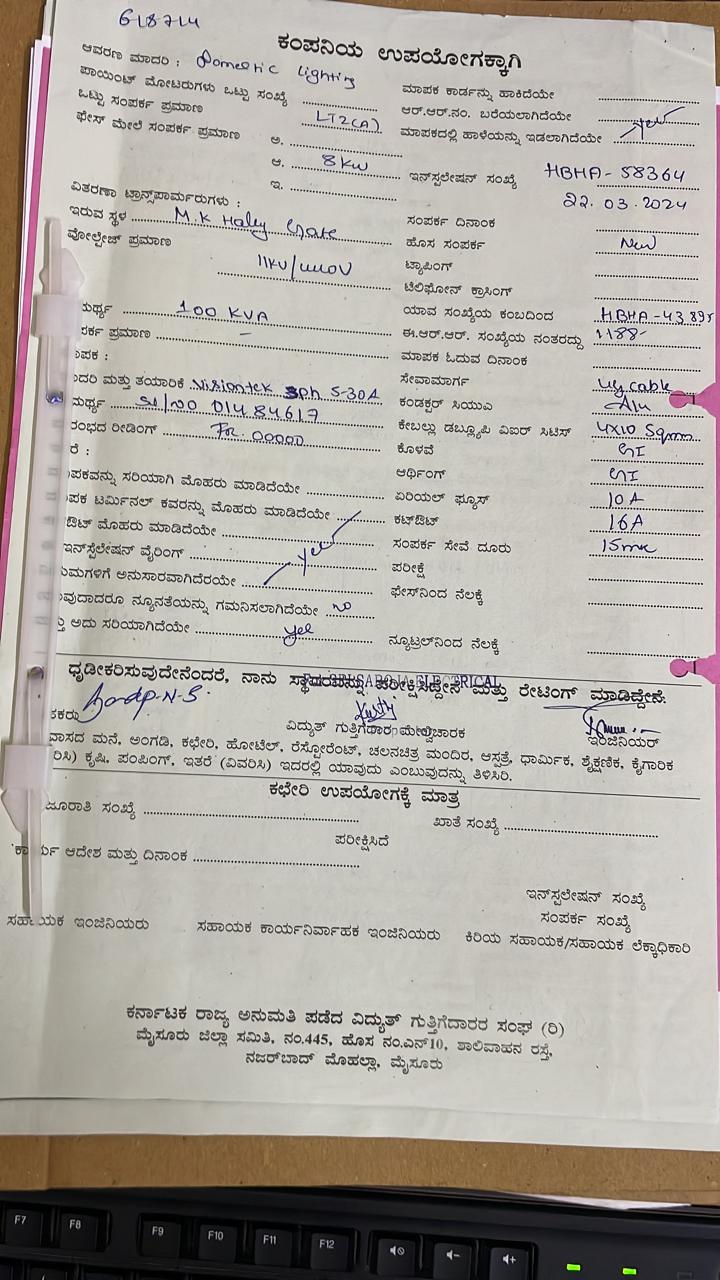 618714
ಕಂಪನಿಯ ಉಪಯೋಗಕ್ಕಾಗಿ
ಆವರಣ ಮಾದರಿ : Domestic Lighting
ಮಾಪಕ ಕಾರ್ಡನ್ನು ಹಾಕಿದೆಯೇ
ಪಾಯಿಂಟ್ ಮೋಟರುಗಳು ಒಟ್ಟು ಸಂಖ್ಯೆ
ಆರ್.ಆರ್.ನಂ. ಬರೆಯಲಾಗಿದೆಯೇ
ಒಟ್ಟು ಸಂಪರ್ಕ ಪ್ರಮಾಣ LT2(A)
ಮಾಪಕದಲ್ಲಿ ಹಾಳೆಯನ್ನು ಇಡಲಾಗಿದೆಯೇ yes
ಫೇಸ್ ಮೇಲೆ ಸಂಪರ್ಕ ಪ್ರಮಾಣ ಅ.
ಆ. 8KW
ಇನ್‌ಸ್ಟಲೇಷನ್ ಸಂಖ್ಯೆ HBHA-58364
ಇ.
22.03.2024
ವಿತರಣಾ ಟ್ರಾನ್ಸ್‌ಪಾರ್ಮರುಗಳು :
ಸಂಪರ್ಕ ದಿನಾಂಕ
ಇರುವ ಸ್ಥಳ M.K Haley Gate
ಹೊಸ ಸಂಪರ್ಕ New
ವೋಲ್ಟೇಜ್ ಪ್ರಮಾಣ 11KV/
ಟ್ಯಾಪಿಂಗ್
ಟೆಲಿಫೋನ್ ಕ್ರಾಸಿಂಗ್
ಮರ್ಥ್ಯ 100 KVA
ಯಾವ ಸಂಖ್ಯೆಯ ಕಂಬದಿಂದ HBHA-43895
ಪರ್ಕ ಪ್ರಮಾಣ -
ಈ.ಆರ್.ಆರ್. ಸಂಖ್ಯೆಯ ನಂತರದ್ದು
ಪಕ :
ಮಾಪಕ ಓದುವ ದಿನಾಂಕ
ದರಿ ಮತ್ತು ತಯಾರಿಕೆ Visiontek 3ph 5-30A
ಸೇವಾಮಾರ್ಗ Ug cable
ಮರ್ಥ್ಯ 01484617
ಕಂಡಕ್ಟರ್ ಸಿಯುಎ Alu
ರಂಭದ ರೀಡಿಂಗ್ 00000
ಕೇಬಲ್ಲು ಡಬ್ಲ್ಯೂಪಿ ವಿಐರ್ ಸಿಟಿಸ್ 4x10 Sqmm
ರೆ :
ಕೊಳವೆ GI
ಪಕವನ್ನು ಸರಿಯಾಗಿ ಮೊಹರು ಮಾಡಿದೆಯೇ
ಆರ್ಥಿಂಗ್ GI
ಪಕ ಟರ್ಮಿನಲ್ ಕವರನ್ನು ಮೊಹರು ಮಾಡಿದೆಯೇ
ಏರಿಯಲ್ ಫ್ಯೂಸ್ 10A
ಔಟ್ ಮೊಹರು ಮಾಡಿದೆಯೇ
ಕಟ್‌ಔಟ್ 16A
ಇನ್‌ಸ್ಟೆಲೇಷನ್ ವೈರಿಂಗ್ yes
ಸಂಪರ್ಕ ಸೇವೆ ದೂರು
ಯಮಗಳಿಗೆ ಅನುಸಾರವಾಗಿದೆರಯೇ
ಪರೀಕ್ಷೆ
ವುದಾದರೂ ನ್ಯೂನತೆಯನ್ನು ಗಮನಿಸಲಾಗಿದೆಯೇ no
ಫೇಸ್‌ನಿಂದ ನೆಲಕ್ಕೆ
ತು ಅದು ಸರಿಯಾಗಿದೆಯೇ yes
ನ್ಯೂಟ್ರಲ್‌ನಿಂದ ನೆಲಕ್ಕೆ
ಧೃಡೀಕರಿಸುವುದೇನೆಂದರೆ, ನಾನು ಸ್ಥಾವರವನ್ನು ಪರೀಕ್ಷಿಸಿದ್ದೇನೆ ಮತ್ತು ರೇಟಿಂಗ್ ಮಾಡಿದ್ದೇನೆ.
ELECTRICAL
ಕರು
ವಿದ್ಯುತ್ ಗುತ್ತಿಗೆದಾರ ಮೇಲ್ವಿಚಾರಕ
ಇಂಜಿನಿಯರ್
ವಾಸದ ಮನೆ, ಅಂಗಡಿ, ಕಛೇರಿ, ಹೋಟೆಲ್, ರೆಸ್ಟೋರೆಂಟ್, ಚಲನಚಿತ್ರ ಮಂದಿರ, ಆಸ್ಪತ್ರೆ, ಧಾರ್ಮಿಕ, ಶೈಕ್ಷಣಿಕ, ಕೈಗಾರಿಕ
ರಿಸಿ) ಕೃಷಿ, ಪಂಪಿಂಗ್, ಇತರೆ (ವಿವರಿಸಿ) ಇದರಲ್ಲಿ ಯಾವುದು ಎಂಬುವುದನ್ನು ತಿಳಿಸಿರಿ.
ಕಛೇರಿ ಉಪಯೋಗಕ್ಕೆ ಮಾತ್ರ
ಜೂರಾತಿ ಸಂಖ್ಯೆ
ಖಾತೆ ಸಂಖ್ಯೆ
ಪರೀಕ್ಷಿಸಿದೆ
ಕಾರ್ಯ ಆದೇಶ ಮತ್ತು ದಿನಾಂಕ
ಇನ್‌ಸ್ಟಲೇಷನ್ ಸಂಖ್ಯೆ
ಸಂಪರ್ಕ ಸಂಖ್ಯೆ
ಸಹಾಯಕ ಇಂಜಿನಿಯರು ಸಹಾಯಕ ಕಾರ್ಯನಿರ್ವಾಹಕ ಇಂಜಿನಿಯರು ಕಿರಿಯ ಸಹಾಯಕ/ಸಹಾಯಕ ಲೆಕ್ಕಾಧಿಕಾರಿ
ಕರ್ನಾಟಕ ರಾಜ್ಯ ಅನುಮತಿ ಪಡೆದ ವಿದ್ಯುತ್ ಗುತ್ತಿಗೆದಾರರ ಸಂಘ (ರಿ)
ಮೈಸೂರು ಜಿಲ್ಲಾ ಸಮಿತಿ, ನಂ.445, ಹೊಸ ನಂ.ಎನ್10, ಶಾಲಿವಾಹನ ರಸ್ತೆ,
ನಜರ್‌ಬಾದ್ ಮೊಹಲ್ಲಾ, ಮೈಸೂರು
F7 F8 F9 F10 F11 F12